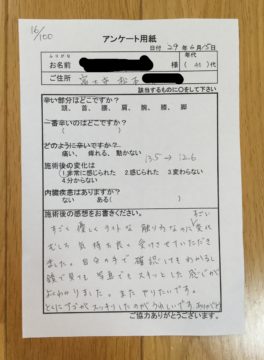 16/100
アンケート用紙
日付 29年6月15日
ふりがな
お名前 様
年代 ( 代)
ご住所 富士市
該当するものに○をして下さい
辛い部分はどこですか?
頭、首、腰、肩、腕、膝、脚
一番辛いのはどこですか?
( )
どのように辛いですか?
痛い、痺れる、動かない
135 → 126
施術後の変化は
1.非常に感じられた 2.感じられた 3.変わらない
4.分からない
内臓疾患はありますか?
ない ある( )
施術後の感想をお書きください。
すごく 優しく ライトな 触り方なのに すごい 変化
でした 気持ち良く 受けさせていただき
ました。自分の手で 確認しても わかるし
鏡で見ても 写真でも スキッとした 感じが
よくわかりました。また やりたいです。
とくに がスッキリしたのが うれしいです
ご協力ありがとうございます。